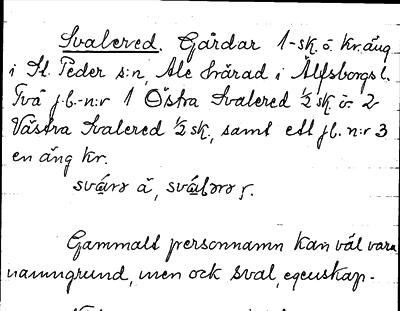 Svalered. Gårdar 1-sk. o. kr. äng
i St. Peder s:n, Ale härad i Älfsborgs l.
Två j.b.-n:r 1 Östra Svalered 1/2 sk. o. 2
Västra Svalered 1/2 sk., samt ett jb. n:r 3
en äng kr.
Gammalt personnamn kan väl vara
namngrund, men ock sval, egenskap-